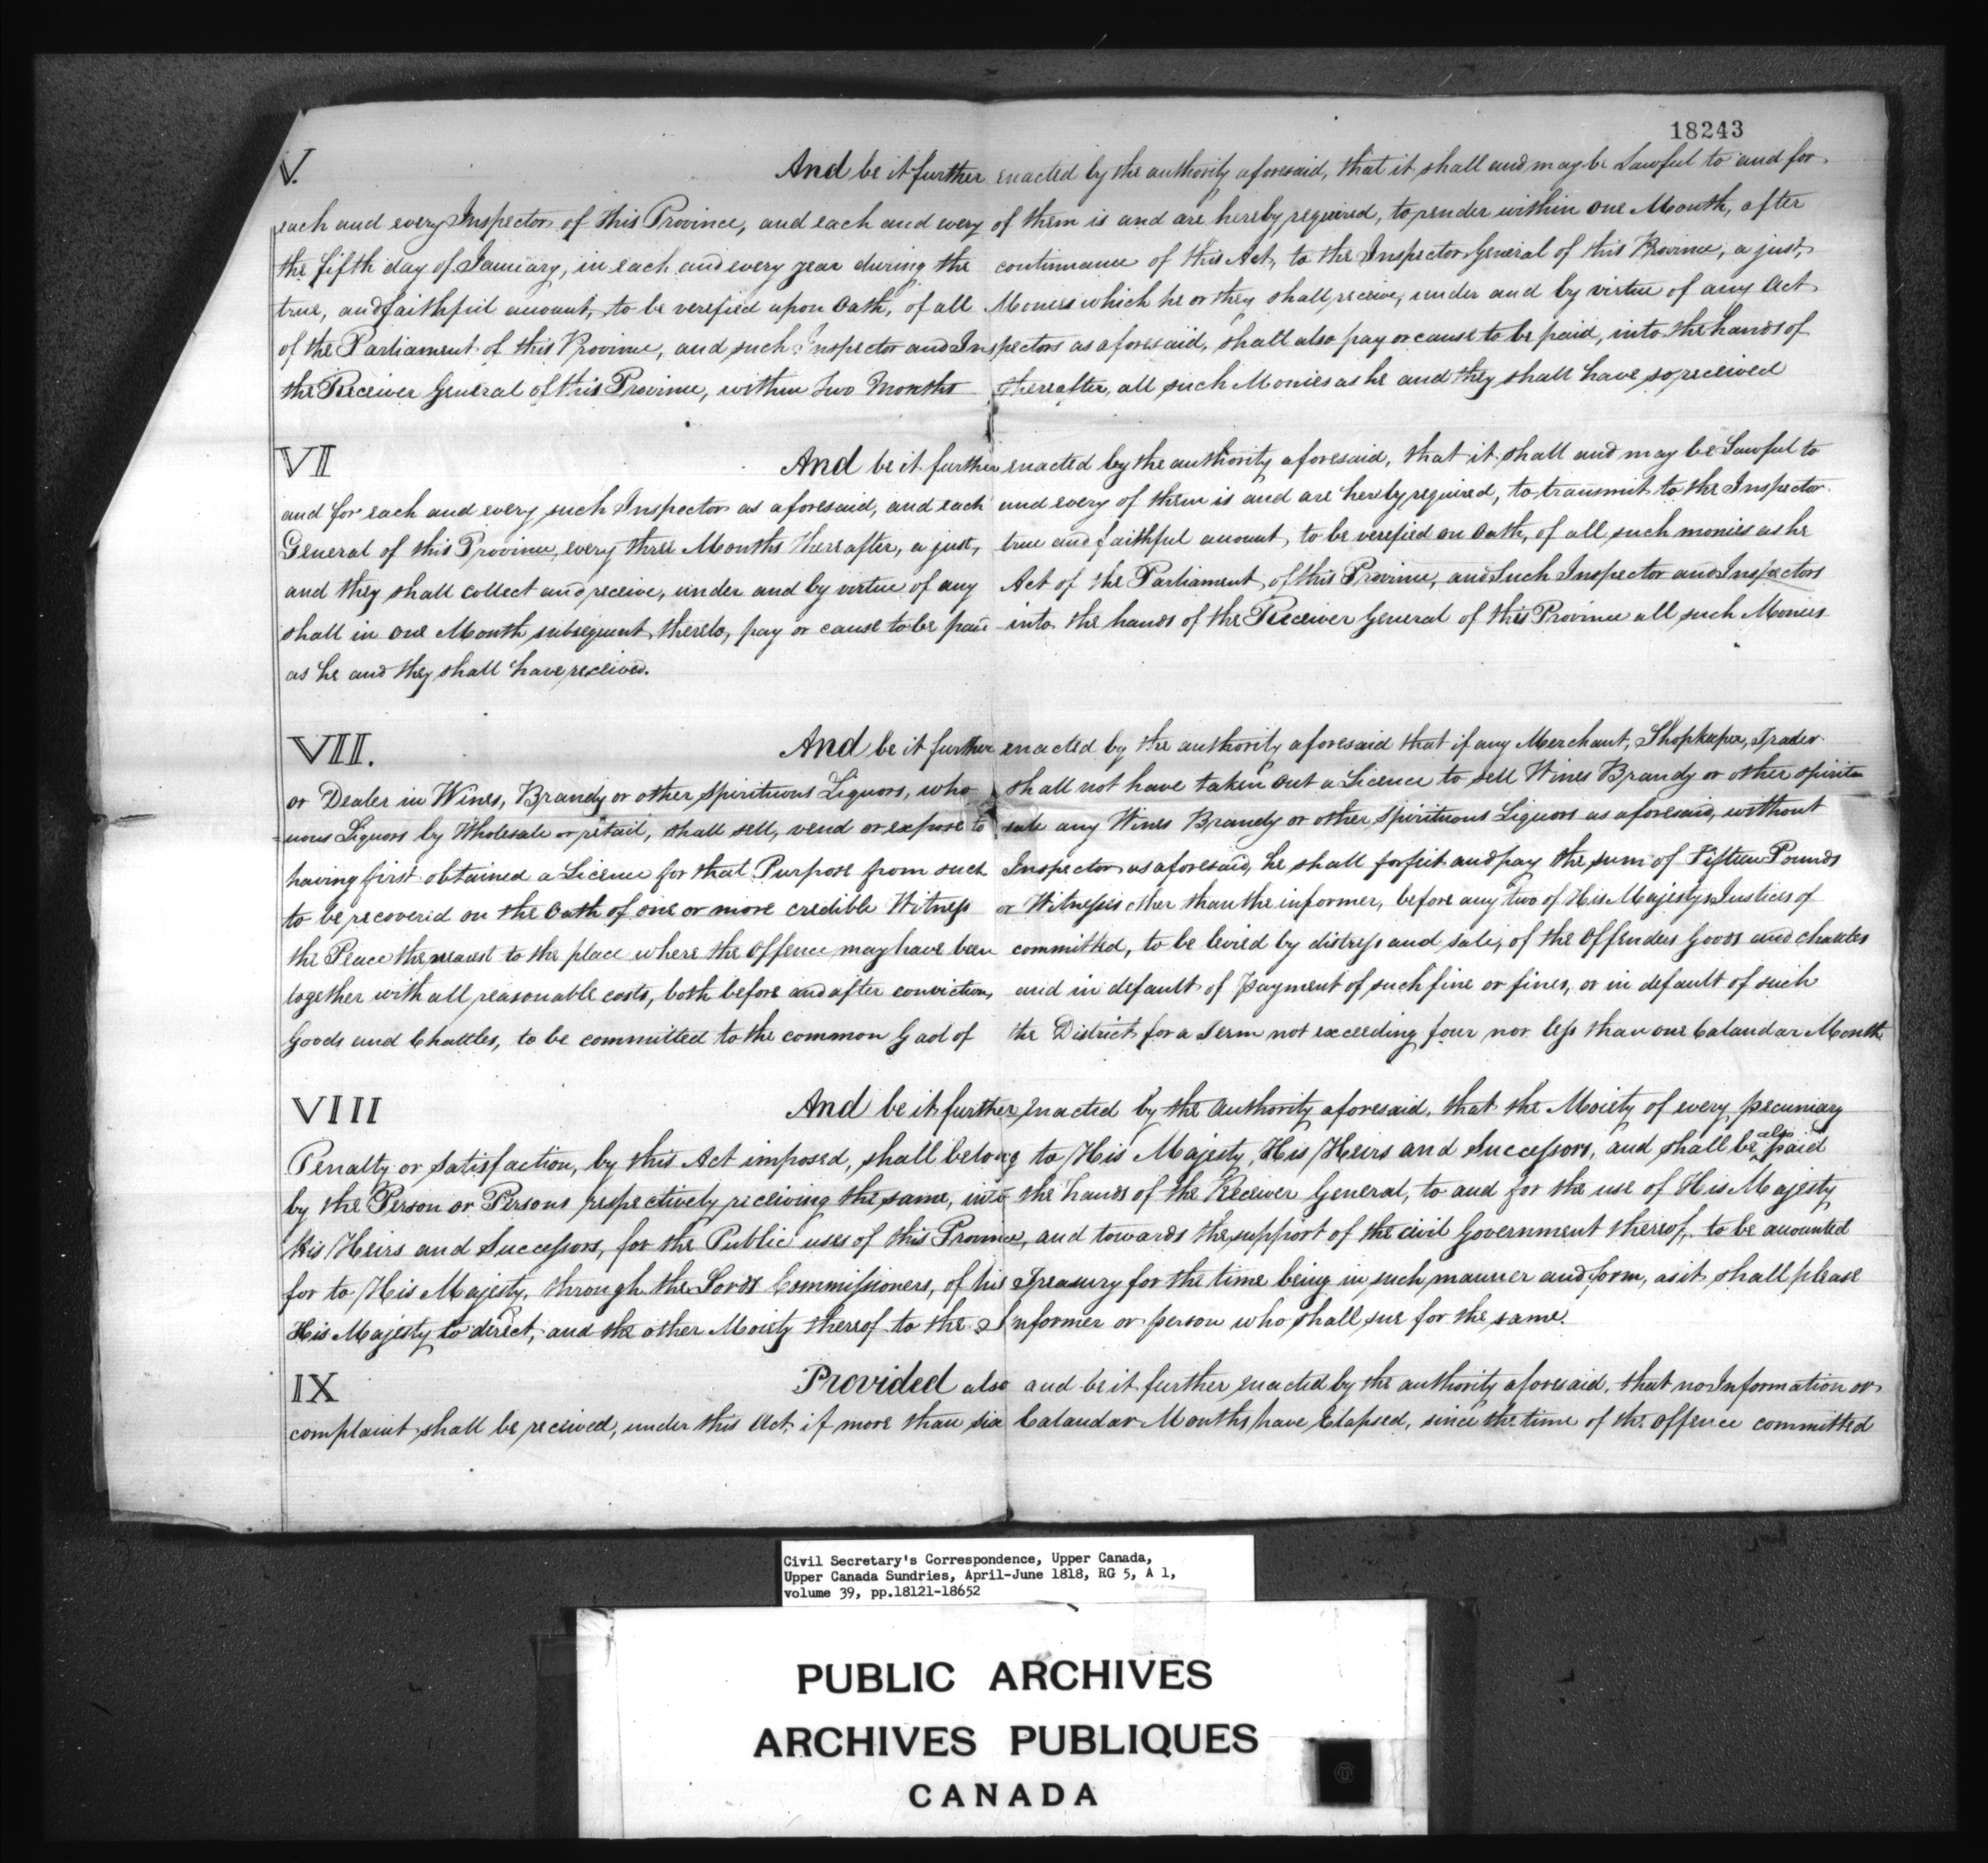 18243
V. And be it further enacted by the authority aforesaid, that it shall and may be Lawful to and for
each and every Inspector of this Province, and each and every of them is and are hereby required, to render within one Month, after
the fifth day of January, in each and every year during the continuance of this Act, to the Inspector General of this Province, a just,
true, and faithful account, to be verefied upon Oath, of all Monies which he or they shall receive, under and by virtue of any Act
of the Parliament of this Province, and such Inspector and Inspectors as aforesaid, shall also pay or cause to be paid, into the hands of
the Receiver General of this Province, within two Months thereafter, all such Monies as he and they shall have so received
VI And be it further enacted by the authority aforesaid, that it shall and may be Lawful to
and for each and every such Inspector as aforesaid, and each and every of them is and are hereby required, to transmit to the Inspector
General of this Province, every three Months thereafter, a just, true and faithful account, to be verefied on Oath, of all such monies as he
and they shall collect and receive, under and by virtue of any Act of the Parliament of this Province, and Such Inspector and Inspectors
shall in one Month subsequent thereto, pay or cause to be paid into the hands of the Receiver General of this Province all such Monies
as he and they shall have received.
VII. And be it further enacted by the authority aforesaid that if any Merchant, Shopkeeper, Trader
or Dealer in Wines, Brandy or other Spirituous Liquors, who shall not have taken out a Licence to sell Wines Brandy or other spirit
=uous Liquors by Wholesale or retail, shall sell, vend or expose to sale any Wines Brandy or other Spirituous Liquors as aforesaid, without
having first obtained a Licence for that Purpose from such Inspector as aforesaid, he shall forfeit and pay the sum of Fifteen Pounds
to be recovered on the Oath of one or more credible Witness or Witnesses other than the informer, before any two of His Majestys Justices of
the Peace the nearest to the place where the Offence may have been committed, to be levied by distress and sale, of the Offenders Goods and chattles
together with all reasonable costs, both before and after conviction, and in default of Payment of such fine or fines, or in default of such
Goods and Chattles, to be committed to the common Gaol of the District for a Term not exceeding four nor less than one Calandar Month
VIII And be it further enacted by the Authority aforesaid, that the Moiety of every pecuniary
Penalty or Satisfaction, by this Act imposed, shall belong to His Majesty, His Heirs and Successors, and shall be also paid
by the Person or Persons respectively receiving the same, into the hands of the Receiver General, to and for the use of His Majesty
His Heirs and Successors, for the Public uses of this Province, and towards the support of the civil Government thereof, to be accounted
for to His Majesty, through the Lords Commissioners, of his Treasury for the time being in such manner and form, as it shall please
His Majesty to direct, and the other Moiety thereof to the Informer or person who shall sue for the same.
IX Provided also and be it further enacted by the authority aforesaid, that no Information or
complaint shall be received, under this Act, if more than six Calandar Months have Elapsed, since the time of the offence committed
Civil Secretary's Correspondence, Upper Canada,
Upper Canada Sundries, April-June 1818, RG 5, A 1,
volume 39, pp.18121-18652
PUBLIC ARCHIVES
ARCHIVES PUBLIQUES
CANADA